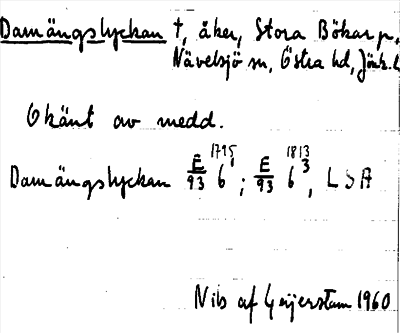 Damängslyckan †, åker, Stora Bökar p,
Nävelsjö sn, Östra hd, Jönk. l.
Okänt av medd.
Damängslyckan E/93 1795/6 ; E/93 1813/6 3, LSA
Nils af Geijerstam 1960